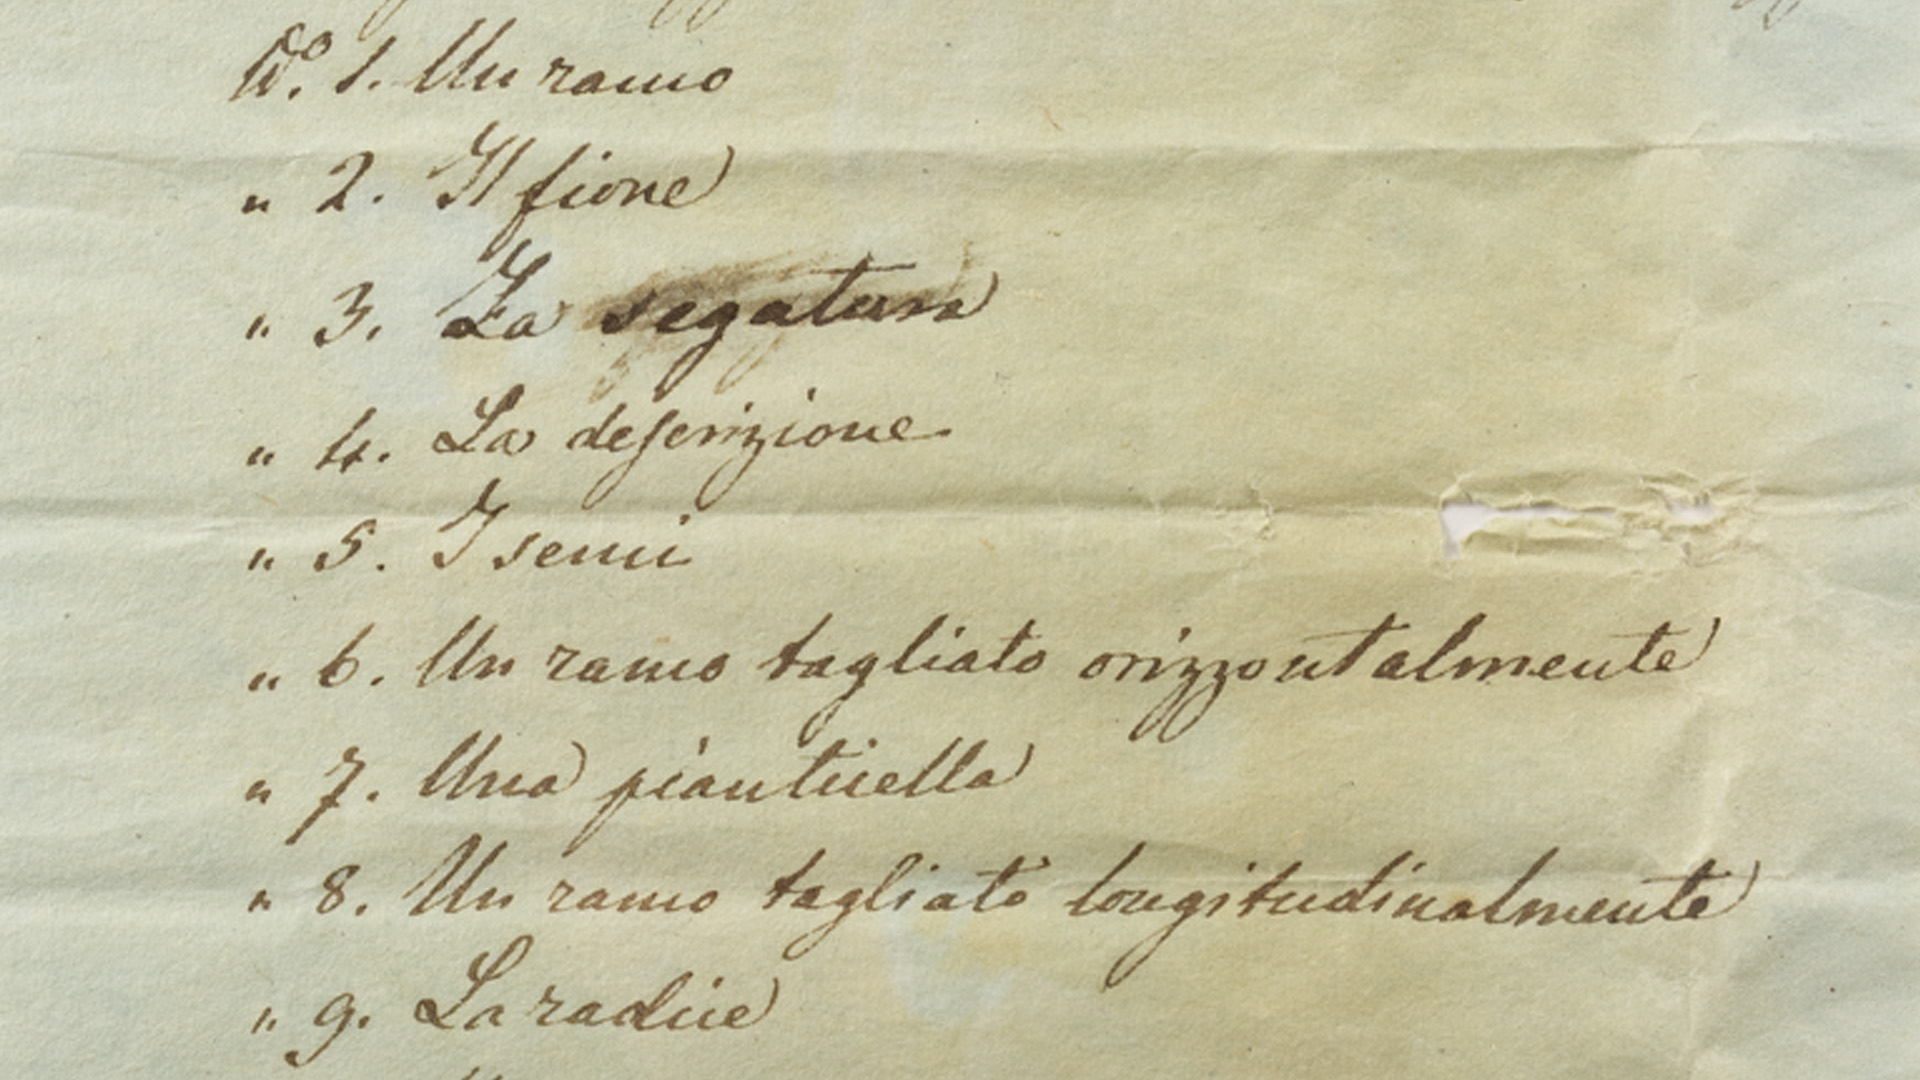 No. 1. Un ramo
" 2. Il fiore
" 3. La segatura
" 4. La descrizione
" 5. I semi
" 6. Un ramo tagliato orizzontalmente
" 7. Una pianticella
" 8. Un ramo tagliato longitudinalmente
" 9. La radice